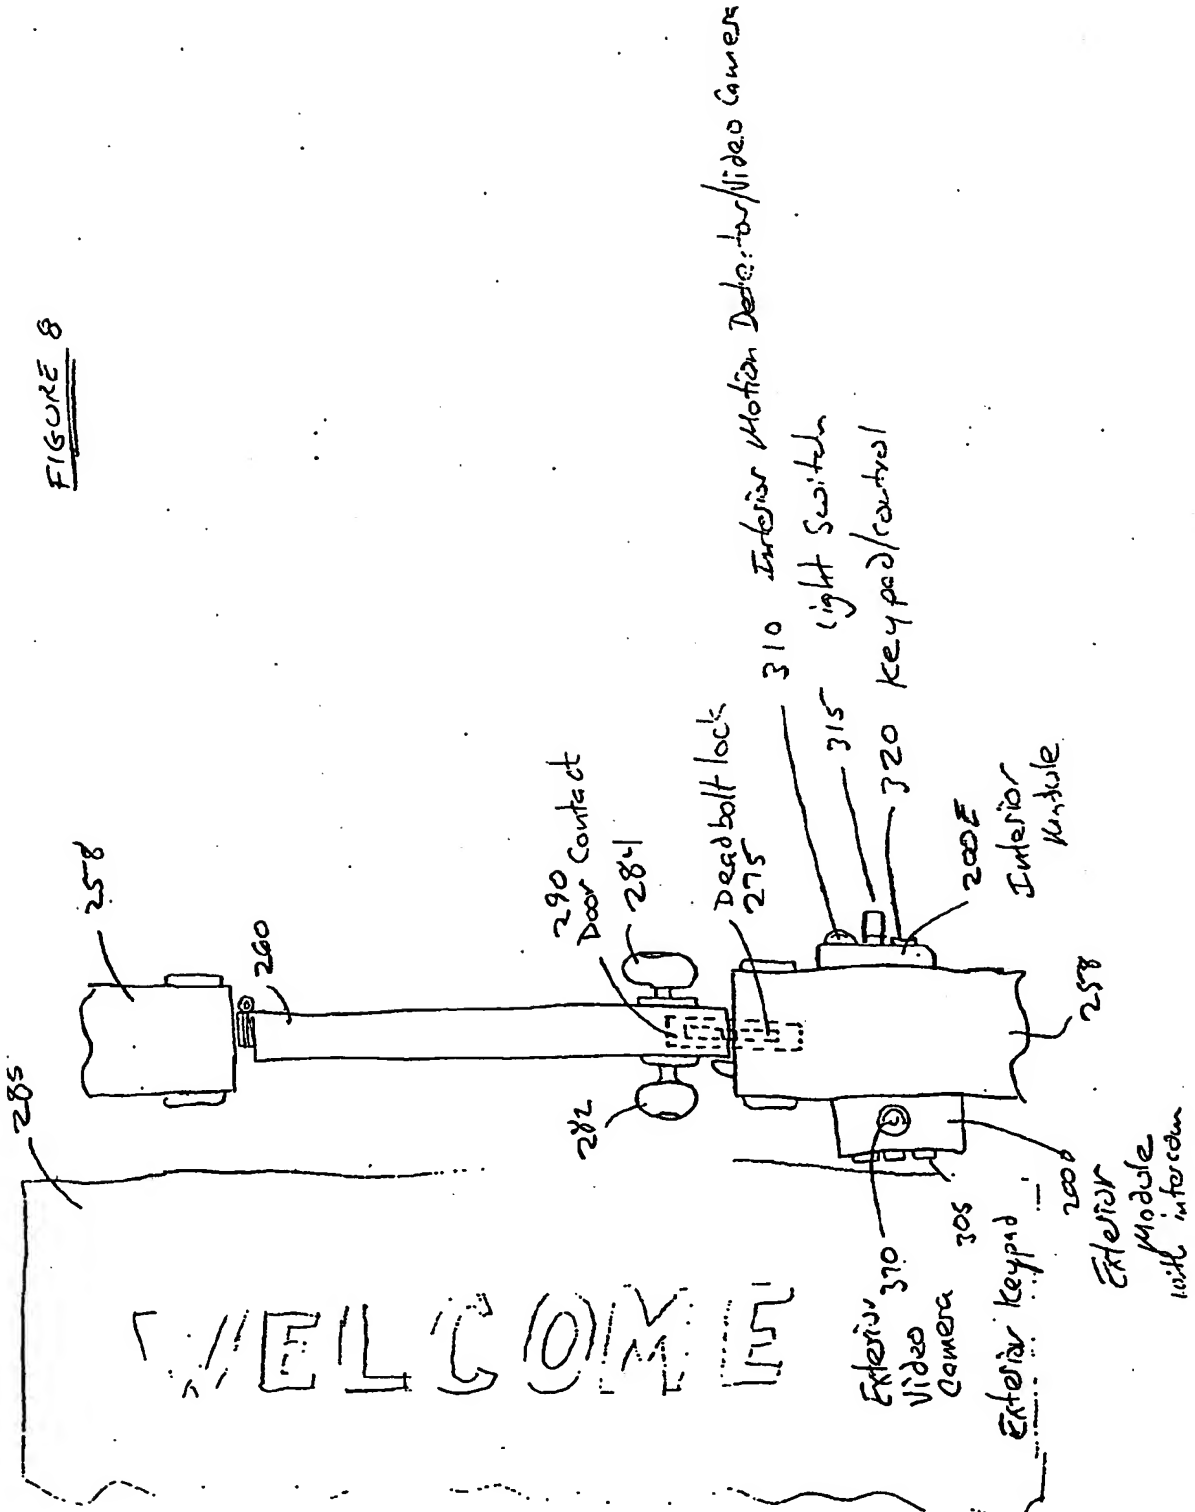 FIGURE 8
285
258
260
290
Door Contact
284
282
Deadbolt lock
275
310 Interior Motion Detector/Video Camera
315 Light Switch
320 Keypad/Control
200E
Interior
Module
258
WELCOME
Exterior 370
Video
Camera
305
Exterior Keypad
200D
Exterior
Module
with intercom